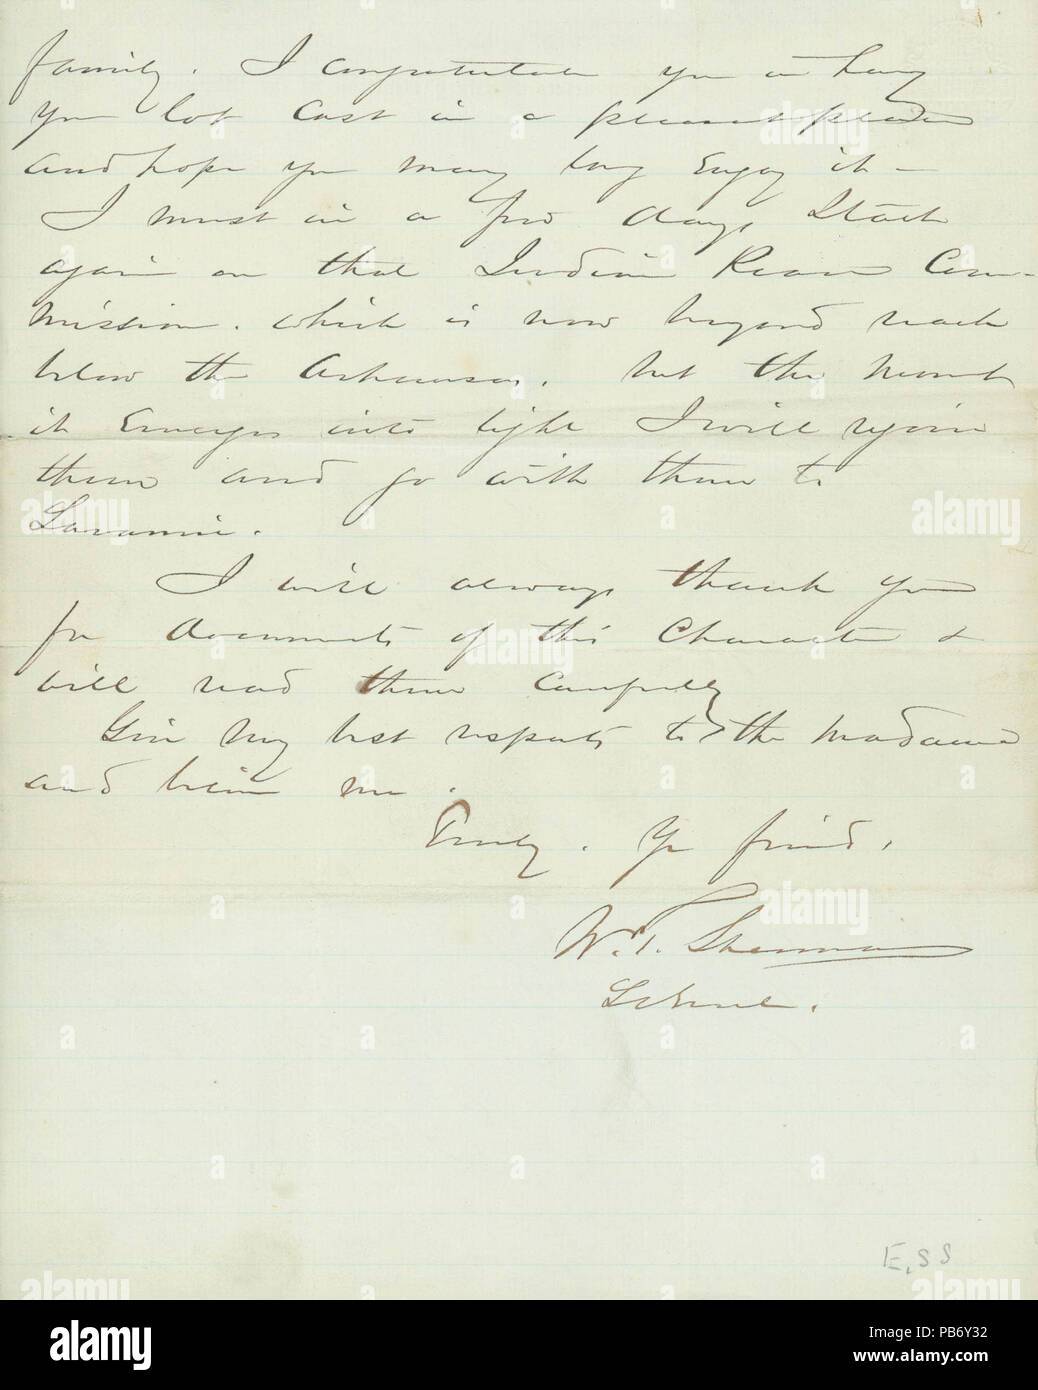 family. I congratulate you in having
your lot cast in a pleasant place
and hope you may long Enjoy it –
I must in a few days start
again on that Indian Peace Com-
mission. which is now beyond reach
below the Arkansas. but the moment
it Emerges into light I will rejoin
them and go with them to
Laramie.
I will always thank you
for documents of this Character &
will read them carefully
Give my best respects to the Madame
and believe me.
Truly. Yr friend,
W. T. Sherman
Lt Genl.
E, S S
alamy
Image ID: PB6Y32
www.alamy.com